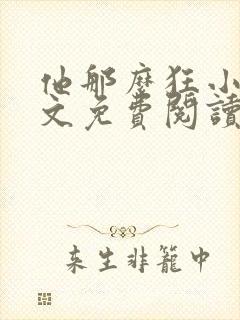 他那麼狂小
文免費閱讀
来生非籠中